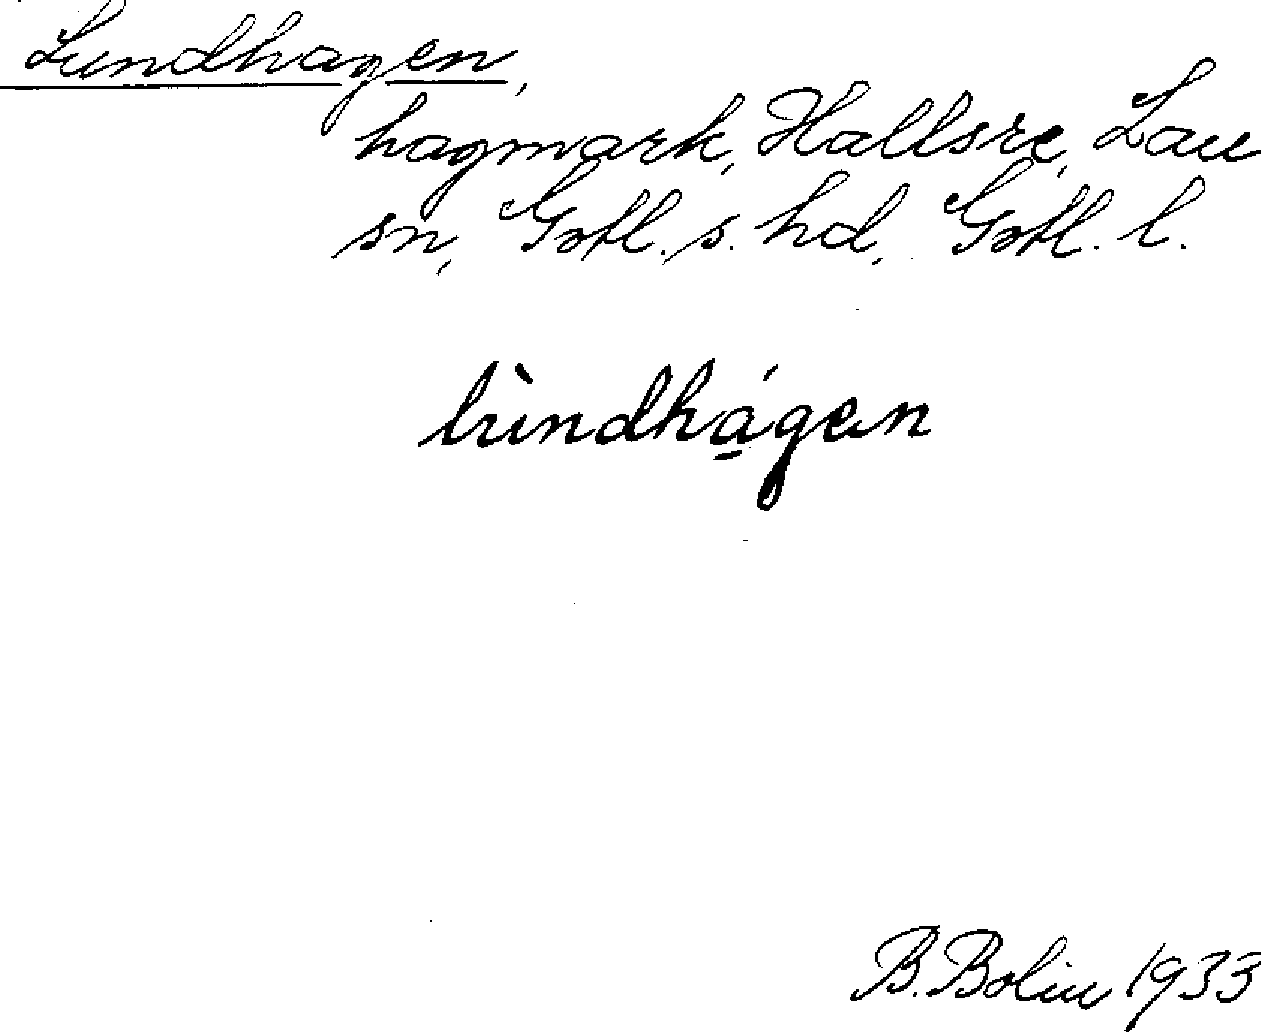 Lundhagen,
hagmark, Hallsre, Lau
sn, Gotl. s. hd, Gotl. l.
lùndhá̱gen
B. Bolin 1933